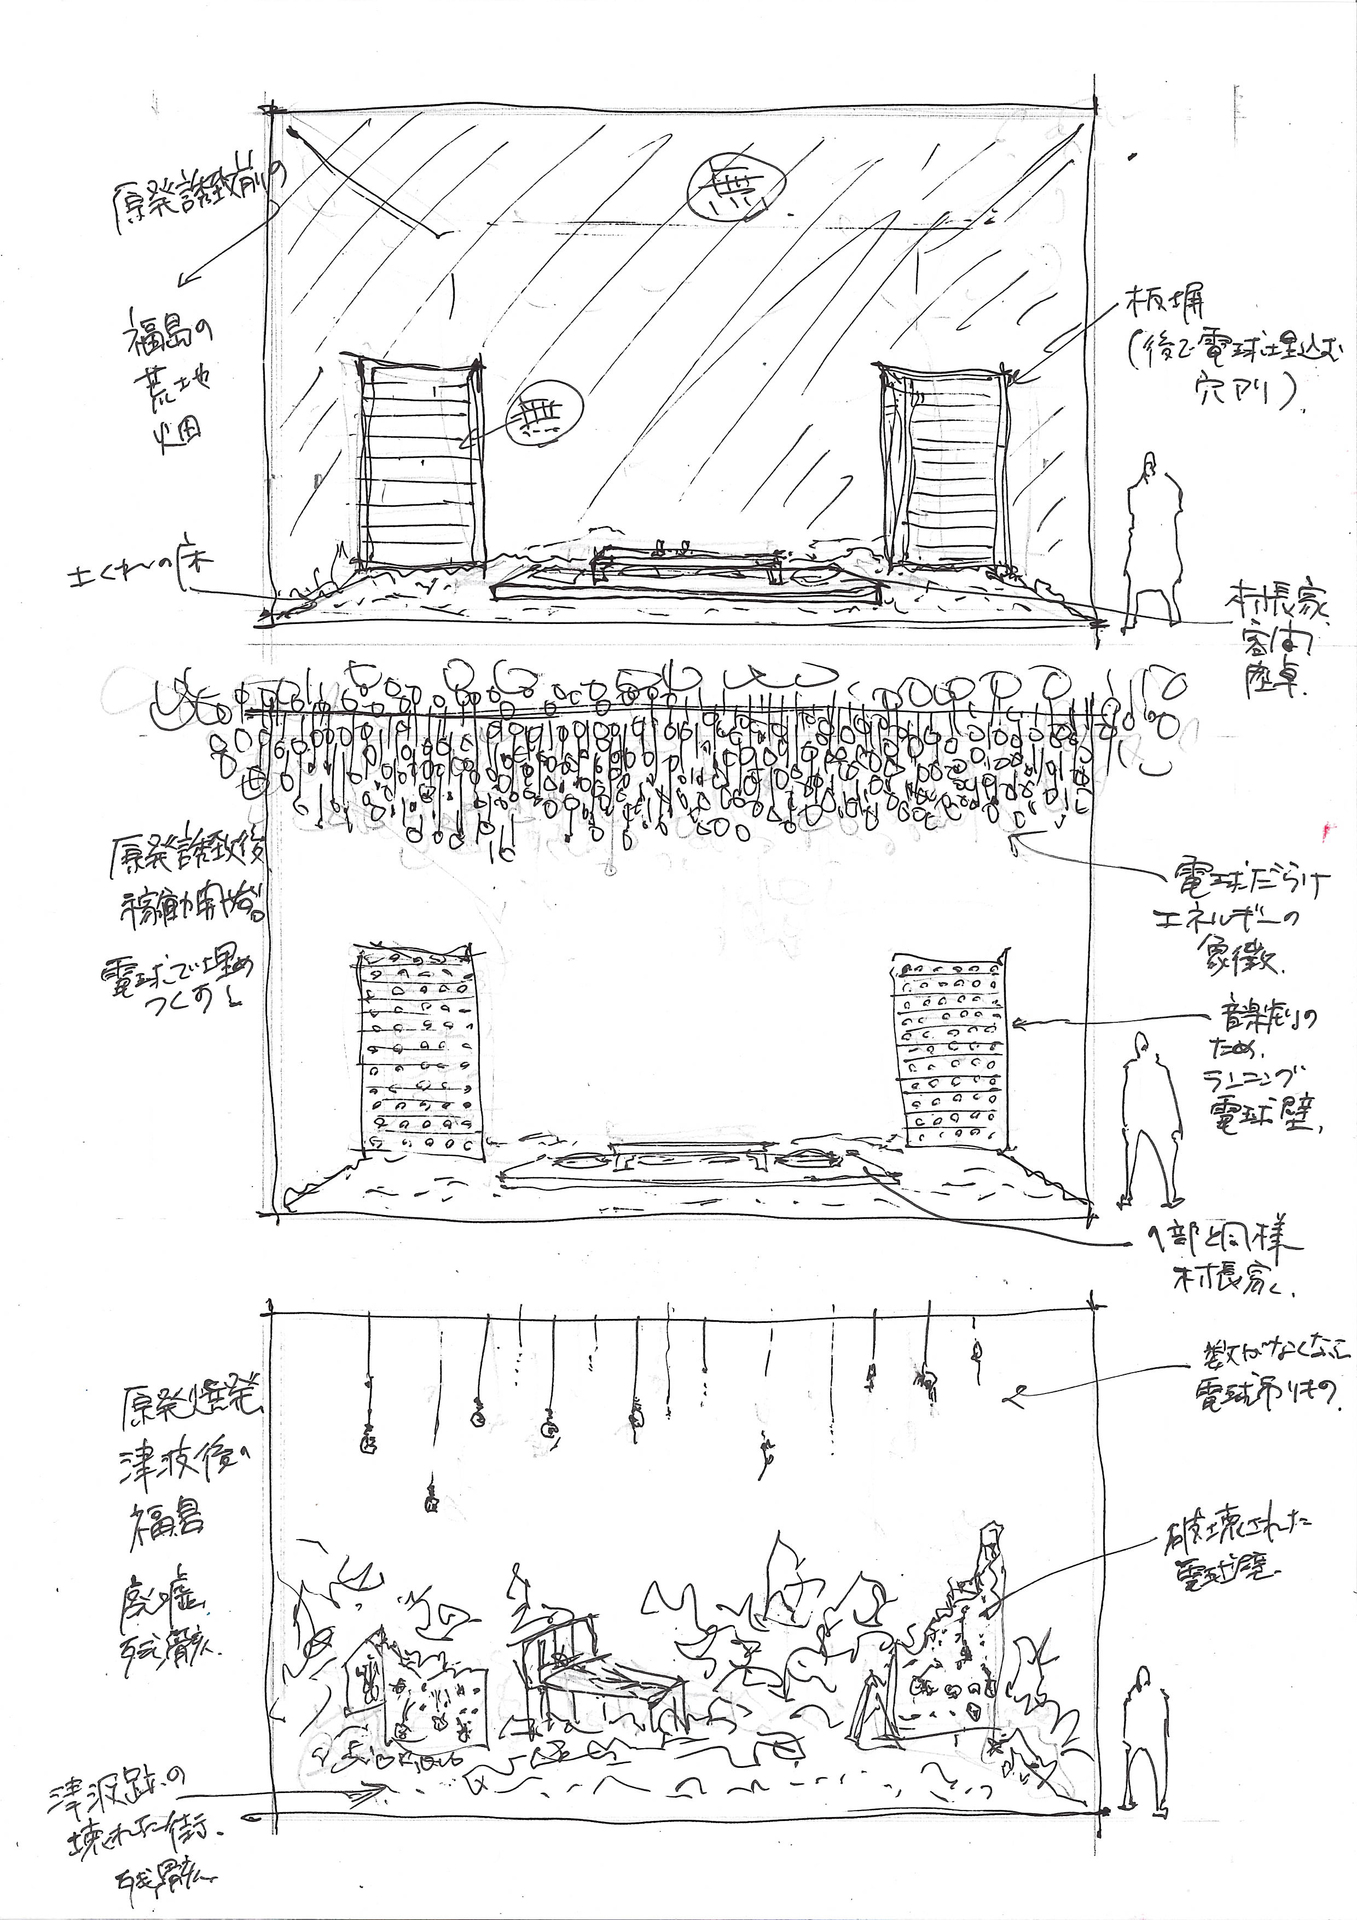 原発誘致前の
福島の
荒地
畑
板塀
(後で電球埋込む
穴アリ)
土くれの床
村長家
客間
座卓.
原発誘致後
稼動開始。
電球で埋め
つくす
電球だらけ
エネルギーの
象徴.
音楽劇の
ため.
ランニング
電球壁.
1部と同様
村長家.
原発爆発
津波後の
福島
廃墟
残骸.
数がなくなった
電球吊りもの.
破壊された
電球壁.
津波跡の
壊れた街.
残骸